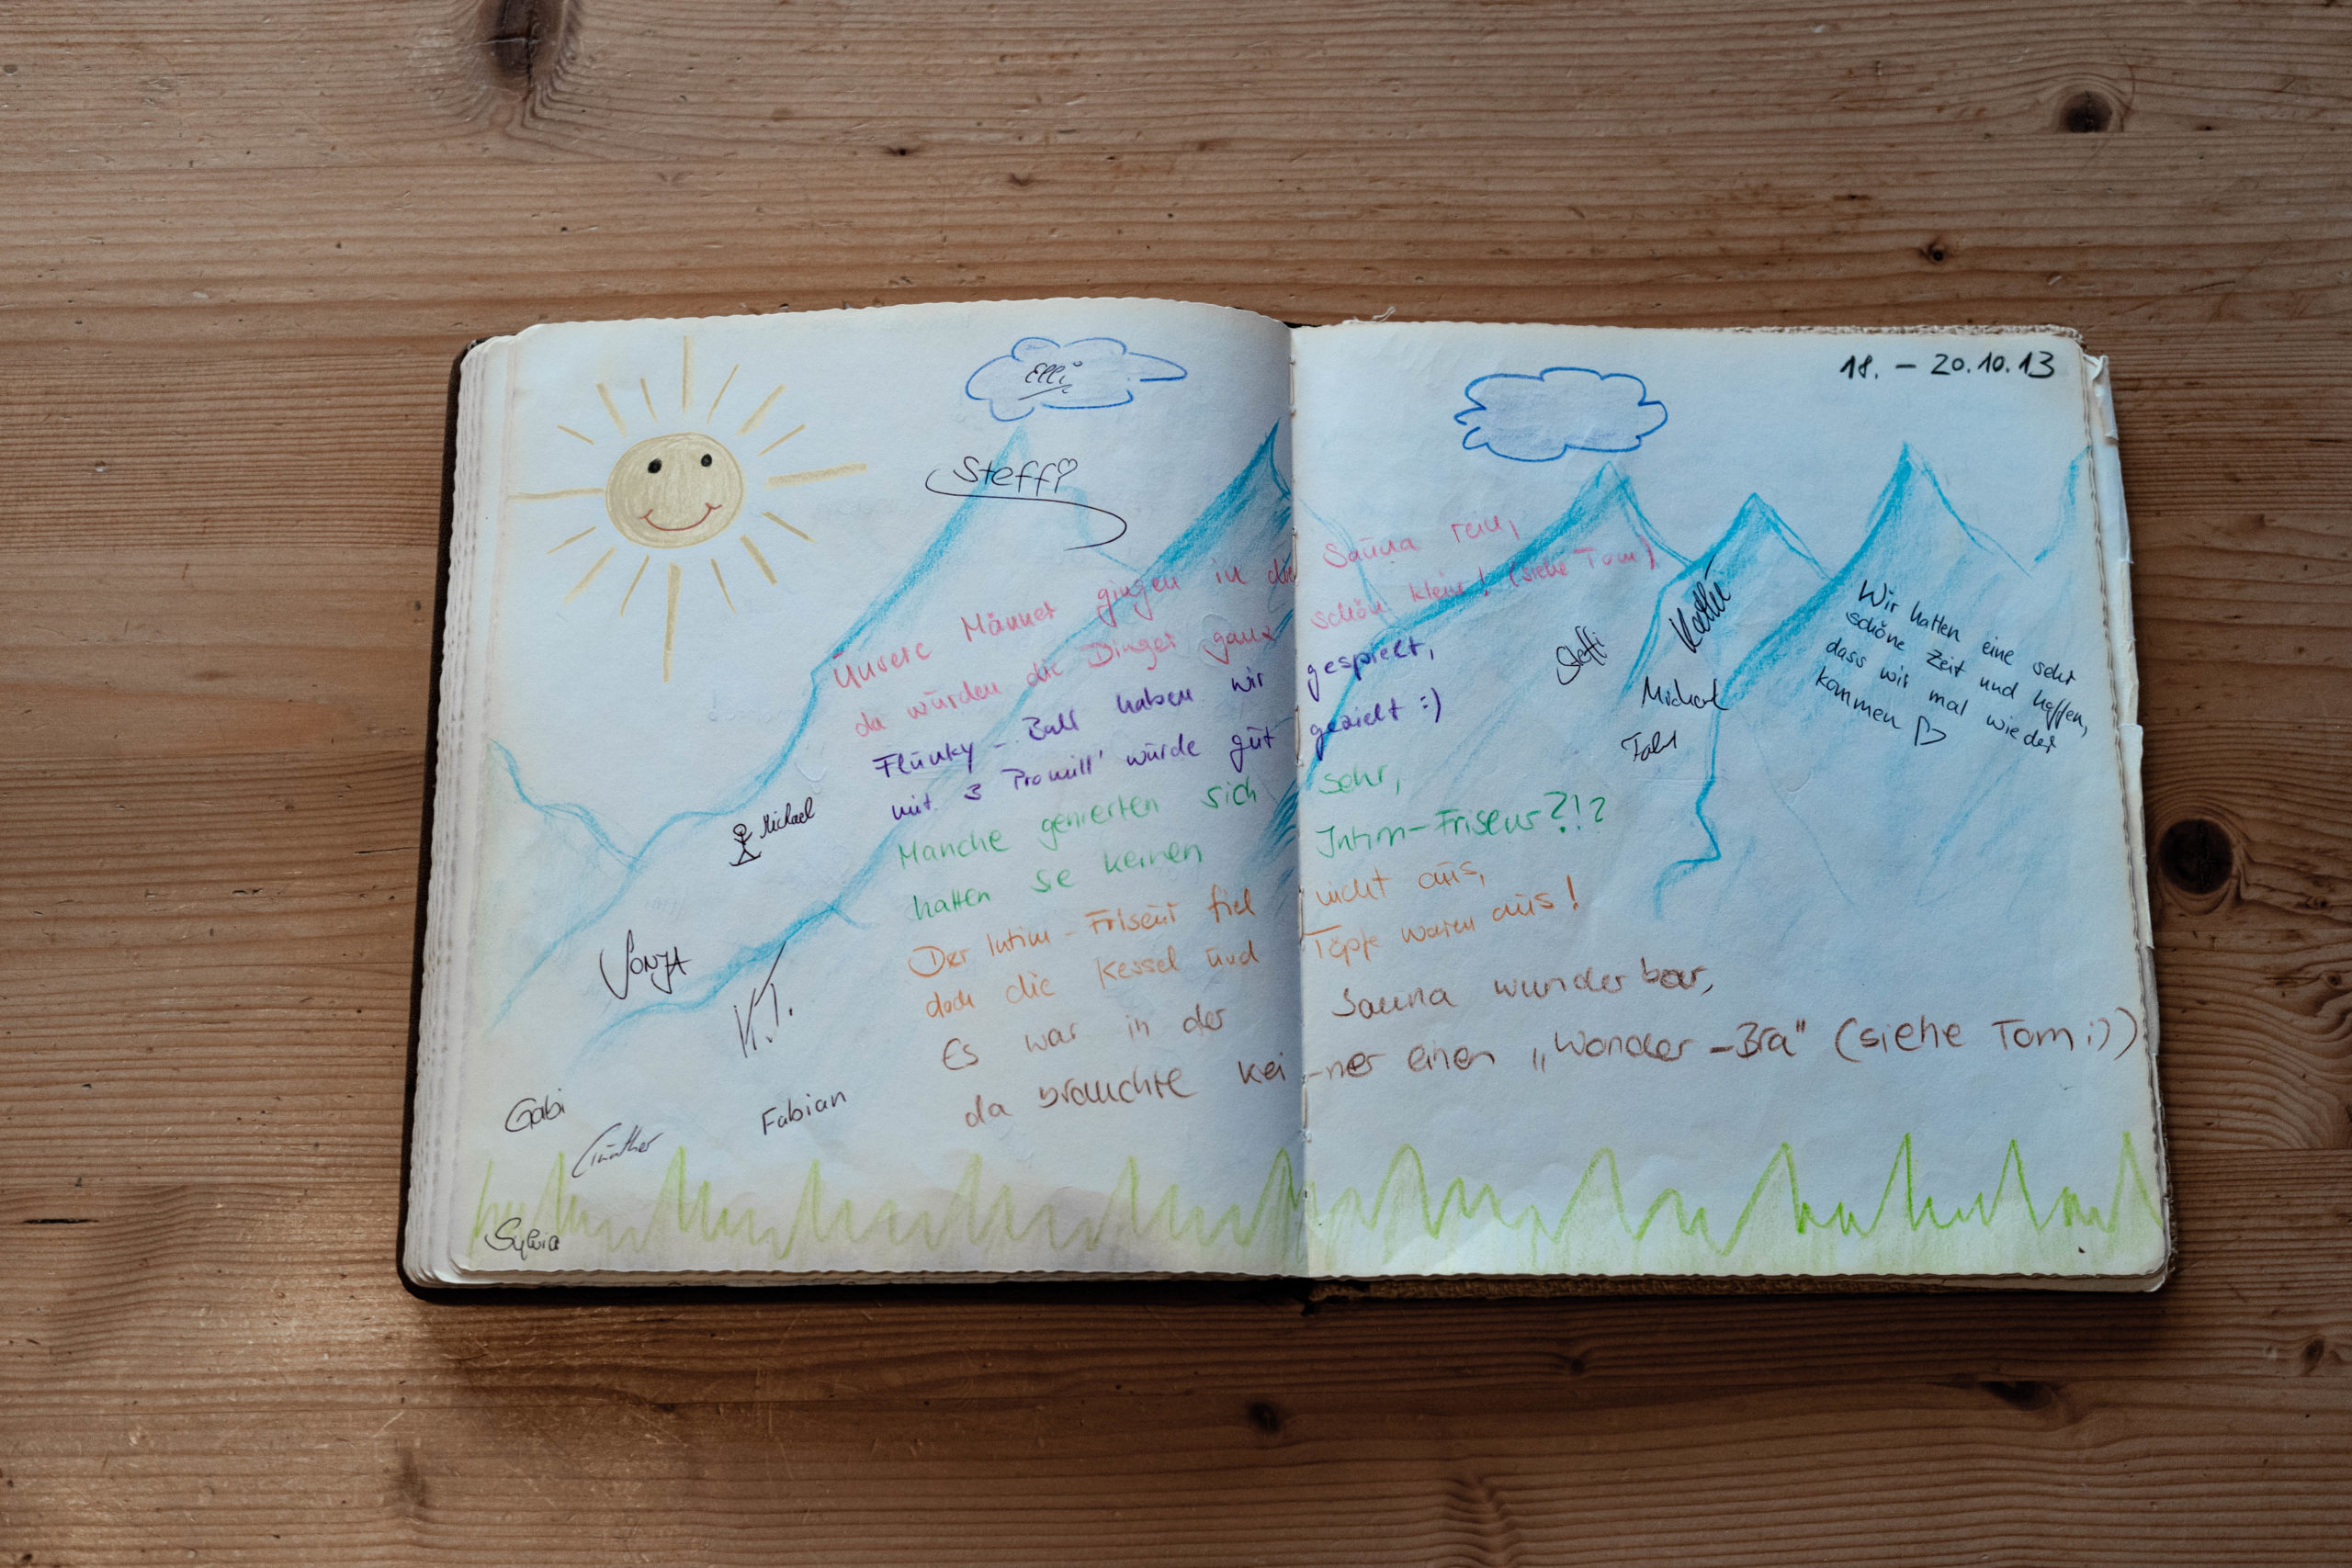 18. – 20.10.13
Elli
Steffi
Unsere Männer gingen in die Sauna rein,
da wurden die Dinger ganz schön klein! (siehe Tom)
Flunky – Ball haben wir gespielt,
mit 3 Promill' wurde gut gezielt :)
Manche genierten sich sehr,
hatten sie keinen Intim-Friseur?!?
Der Intim – Friseur fiel nicht aus,
doch die Kessel und Töpfe waren aus!
Es war in der Sauna wunderbar,
da brauchte kei -ner einen „Wonder-Bra" (siehe Tom ;))
Michael
Sonja
K.T.
Gabi
Günther
Fabian
Sylvia
Steffi
Kathi
Michael
Wir hatten eine sehr
schöne Zeit und hoffen,
dass wir mal wieder
kommen